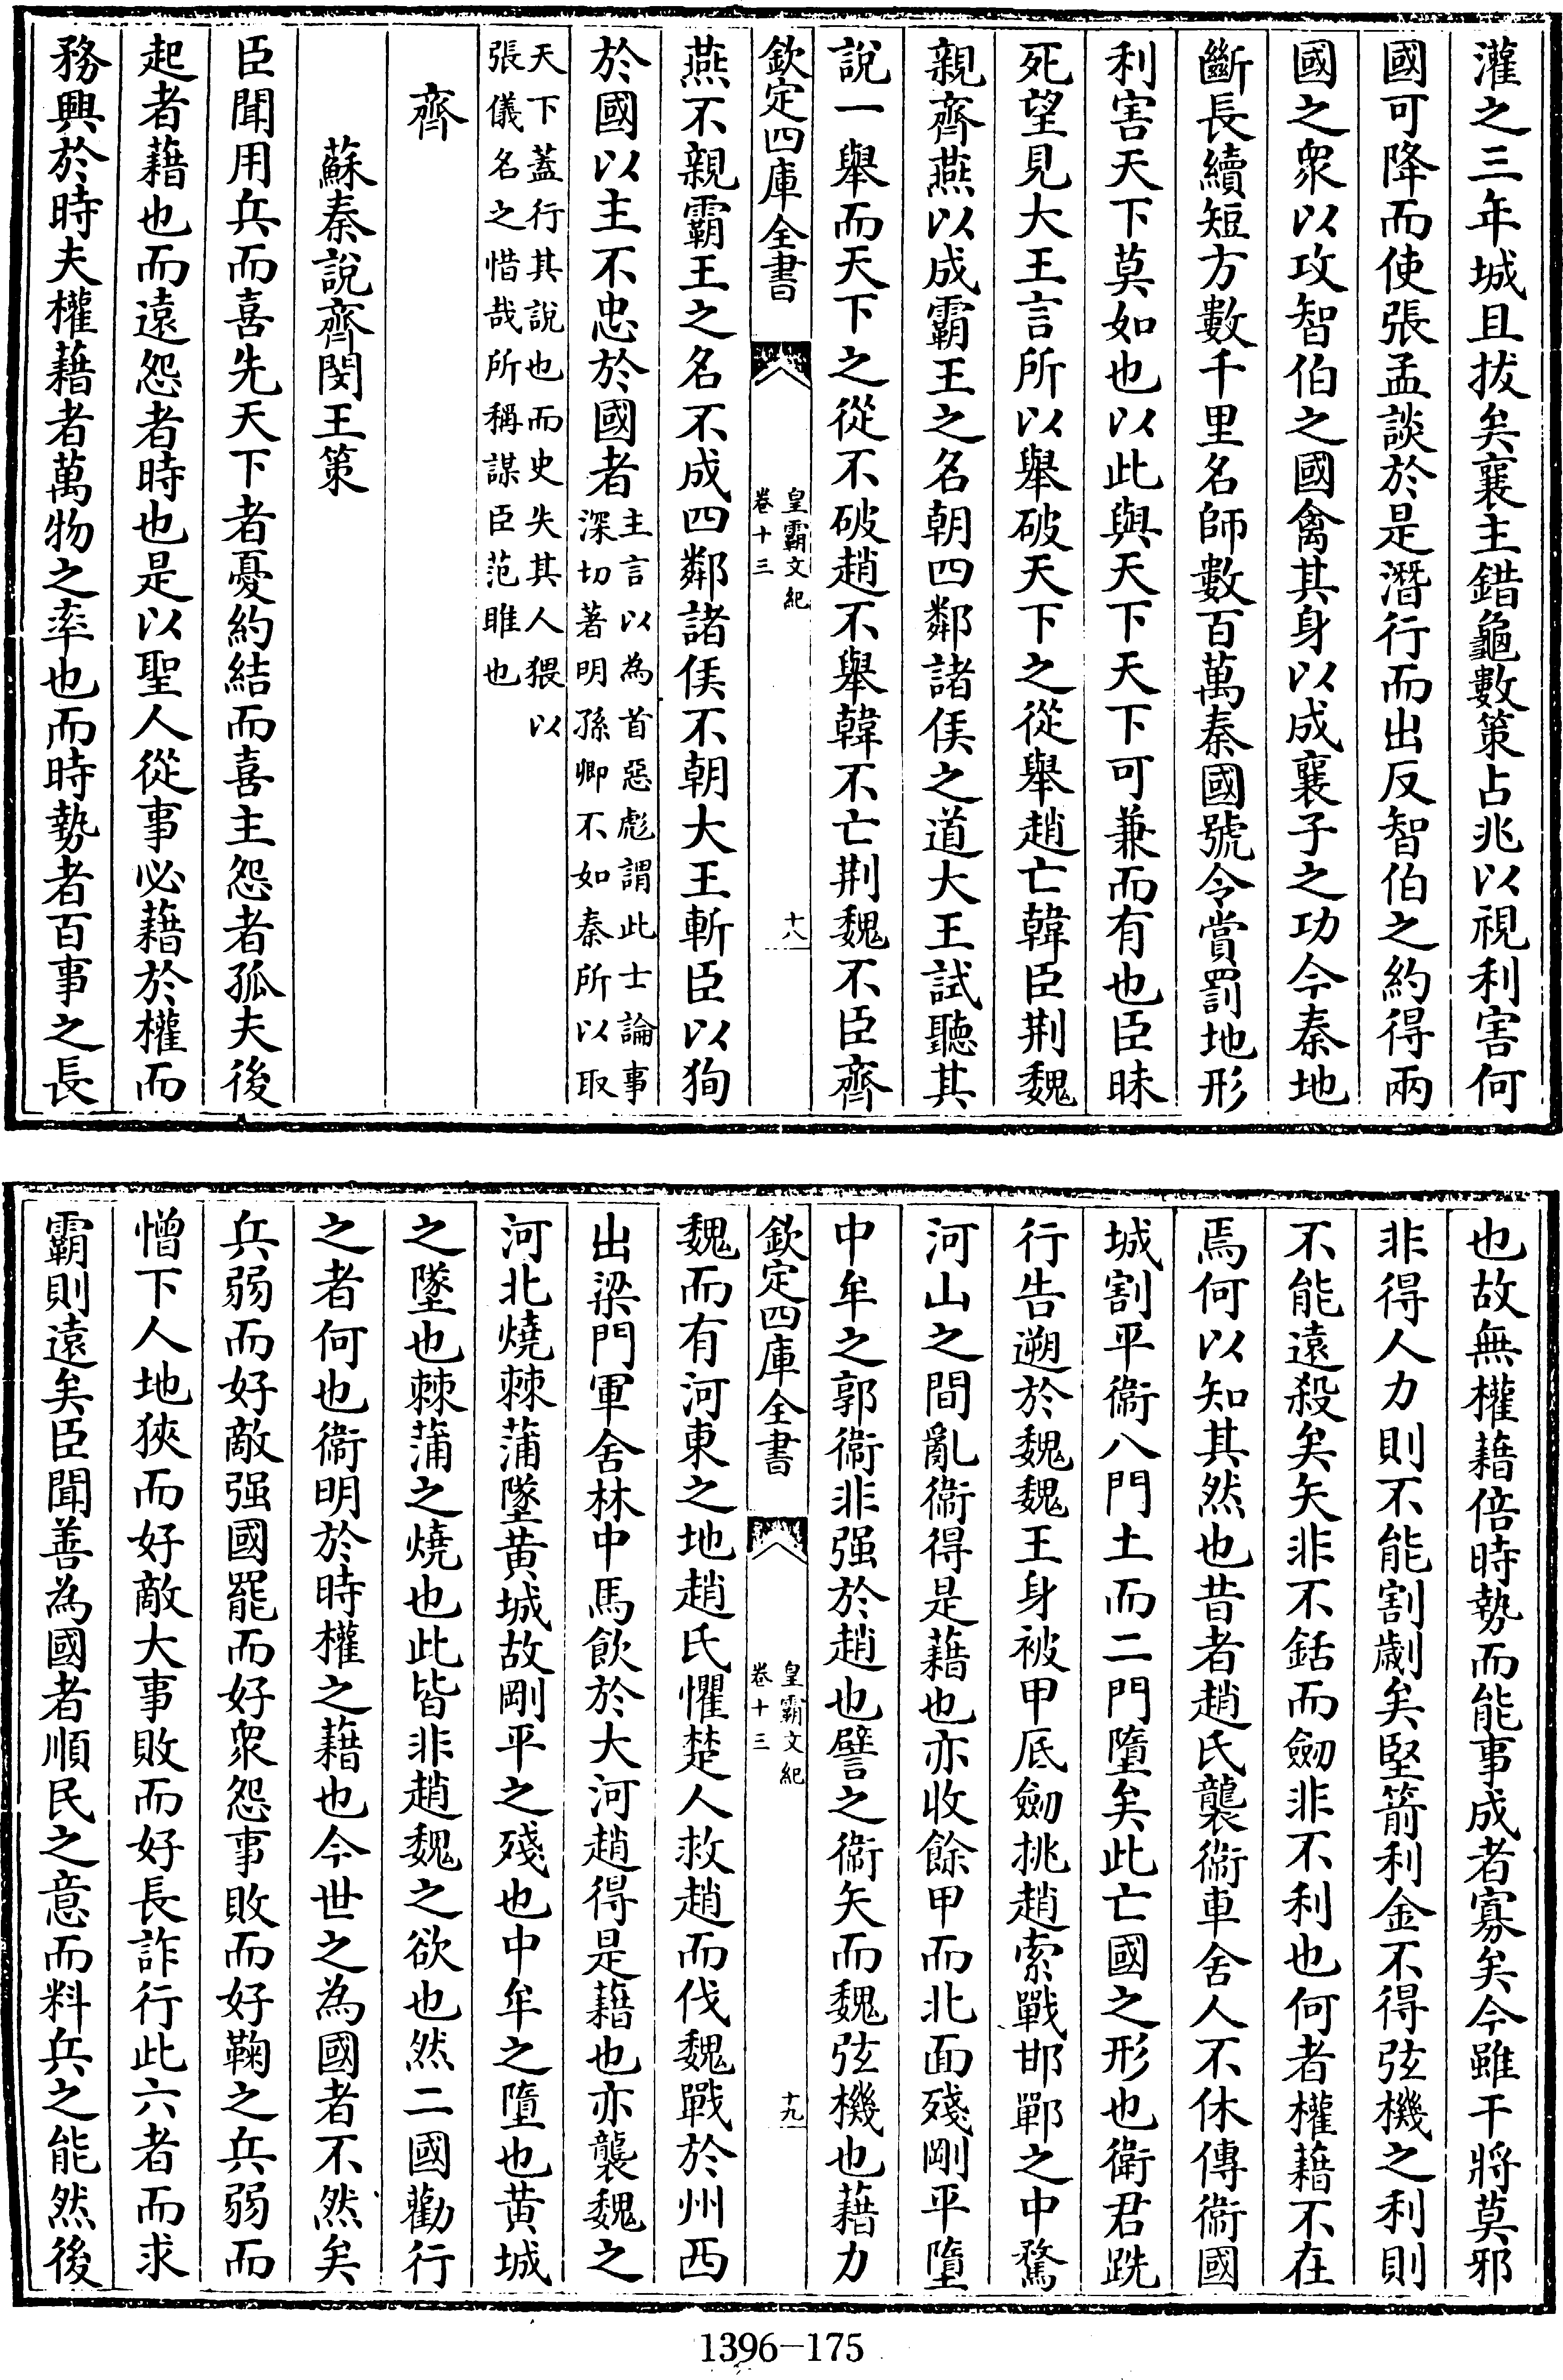 灌之三年城且拔矣襄主錯龜數策占兆以視利害何
國可降而使張孟談於是潛行而出反智伯之約得兩
國之衆以攻智伯之國禽其身以成襄子之功今秦地
斷長續短方數千里名師數百萬秦國號令賞罰地形
利害天下莫如也以此與天下天下可兼而有也臣昧
死望見大王言所以舉破天下之從舉趙亡韓臣荆魏
親齊燕以成霸王之名朝四鄰諸侯之道大王試聽其
說一舉而天下之從不破趙不舉韓不亡荆魏不臣齊
欽定四庫全書
皇霸文紀
卷十三
十八
燕不親霸王之名不成四鄰諸侯不朝大王斬臣以狥
於國以主不忠於國者
主言以為首惡彪謂此士論事
深切著明孫卿不如秦所以取
天下蓋行其說也而史失其人猥以
張儀名之惜哉所稱謀臣范雎也
齊
蘇秦說齊閔王策
臣聞用兵而喜先天下者憂約結而喜主怨者孤夫後
起者藉也而遠怨者時也是以聖人從事必藉於權而
務興於時夫權藉者萬物之率也而時勢者百事之長
也故無權藉倍時勢而能事成者寡矣今雖干將莫邪
非得人力則不能割劌矣堅箭利金不得弦機之利則
不能遠殺矣矢非不銛而劒非不利也何者權藉不在
焉何以知其然也昔者趙氏襲衛車舍人不休傳衛國
城割平衛八門土而二門墮矣此亡國之形也衛君跣
行告遡於魏魏王身被甲底劒挑趙索戰邯鄲之中騖
河山之間亂衛得是藉也亦收餘甲而北面殘剛平墮
中牟之郭衛非强於趙也譬之衛矢而魏弦機也藉力
欽定四庫全書
皇霸文紀
卷十三
十九
魏而有河東之地趙氏懼楚人救趙而伐魏戰於州西
出梁門軍舍林中馬飲於大河趙得是藉也亦襲魏之
河北燒棘蒲墜黄城故剛平之殘也中牟之墮也黄城
之墜也棘蒲之燒也此皆非趙魏之欲也然二國勸行
之者何也衛明於時權之藉也今世之為國者不然矣
兵弱而好敵强國罷而好衆怨事敗而好鞠之兵弱而
憎下人地狹而好敵大事敗而好長詐行此六者而求
霸則遠矣臣聞善為國者順民之意而料兵之能然後
1396-175